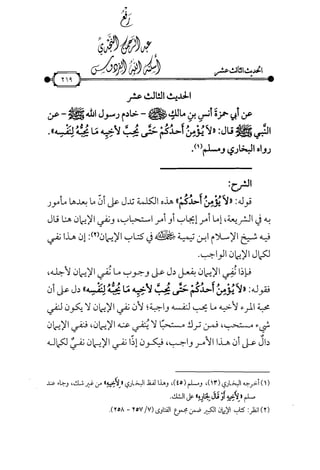 رفع
عبد الرحمن النجدي
أسكنه الله الفردوس
الحديث الثالث عشر
٢١٩
الحديث الثالث عشر
عن أبي حمزة أنس بن مالك ﷺ - خادم رسول الله ﷺ - عن
النبي ﷺ قال: «لَا يُؤْمِنُ أَحَدُكُمْ حَتَّى يُحِبَّ لِأَخِيهِ مَا يُحِبُّهُ لِنَفْسِهِ».
رواه البخاري ومسلم(١).
الشرح:
قوله: «لَا يُؤْمِنُ أَحَدُكُمْ» هذه الكلمة تدل على أنّ ما بعدها مأمور
به في الشريعة، إما أمر إيجاب أو أمر استحباب، ونفي الإيمان هنا قال
فيه شيخ الإسلام ابن تيمية في كتاب الإيمان(٢): إن هذا نفي
لكمال الإيمان الواجب.
فإذا نُفِيَ الإيمان بفعل دل على وجوب ما نُفي الإيمان لأجله،
فقوله: «لَا يُؤْمِنُ أَحَدُكُمْ حَتَّى يُحِبَّ لِأَخِيهِ مَا يُحِبُّهُ لِنَفْسِهِ» دل على أن
محبة المرء لأخيه ما يحب لنفسه واجبة؛ لأن نفي الإيمان لا يكون لنفي
شيء مستحب، فمن ترك مستحبًّا لا يُنفى عنه الإيمان، فنفي الإيمان
دالٌّ على أن هذا الأمر واجب، فيكون إذًا نفي الإيمان نفيٌ لكماله
(١) أخرجه البخاري (١٣)، ومسلم (٤٥)، وهذا لفظ البخاري «لِأَخِيهِ» من غير شك، وجاء عند
مسلم «لِأَخِيهِ أَوْ قَالَ لِجَارِهِ» على الشك.
(٢) انظر: كتاب الإيمان الكبير ضمن مجموع الفتاوى (٧/ ٢٥٧ - ٢٥٨).